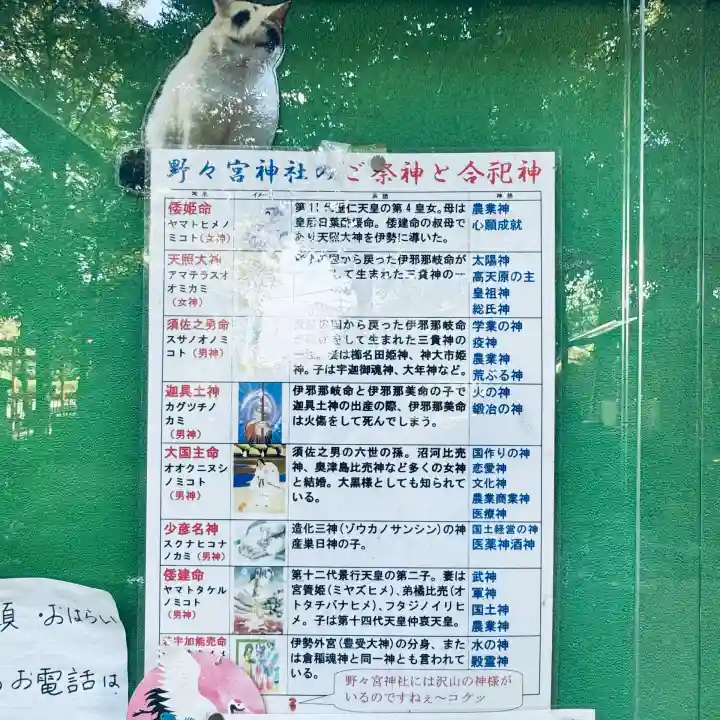 野々宮神社のご祭神と合祀神
神名 イメージ 系譜 神格
倭姫命
ヤマトヒメノ
ミコト(女神)
第11代垂仁天皇の第4皇女。母は
皇后日葉酢媛命。倭建命の叔母で
あり天照大神を伊勢に導いた。
農業神
心願成就
天照大神
アマテラスオ
オミカミ
(女神)
国から戻った伊邪那岐命が
して生まれた三貴神の一
太陽神
高天原の主
皇祖神
総氏神
須佐之男命
スサノオノミ
コト(男神)
国から戻った伊邪那岐命
をして生まれた三貴神の
妻は櫛名田姫神、神大市姫
神。子は宇迦御魂神、大年神など。
学業の神
疫神
農業神
荒ぶる神
迦具土神
カグツチノ
カミ
(男神)
伊邪那岐命と伊邪那美命の子で
迦具土神の出産の際、伊邪那美命
は火傷をして死んでしまう。
火の神
鍛冶の神
大国主命
オオクニヌシ
ノミコト
(男神)
須佐之男の六世の孫。沼河比売
神、奥津島比売神など多くの女神
と結婚。大黒様としても知られて
いる。
国作りの神
恋愛神
文化神
農業商業神
医療神
少彦名神
スクナヒコナ
ノカミ(男神)
造化三神(ゾウカノサンシン)の神
産巣日神の子。
国土経営の神
医薬神酒神
倭建命
ヤマトタケル
ノミコト
(男神)
第十二代景行天皇の第二子。妻は
宮簀姫(ミヤズヒメ)、弟橘比売(オ
トタチバナヒメ)、フタジノイリヒ
メ。子は第十四代天皇仲哀天皇。
武神
軍神
国土神
農業神
宇加能売命
伊勢外宮(豊受大神)の分身、また
は倉稲魂神と同一神とも言われて
いる。
水の神
穀霊神
野々宮神社には沢山の神様が
いるのですねぇ～コケッ
・おはらい
お電話は